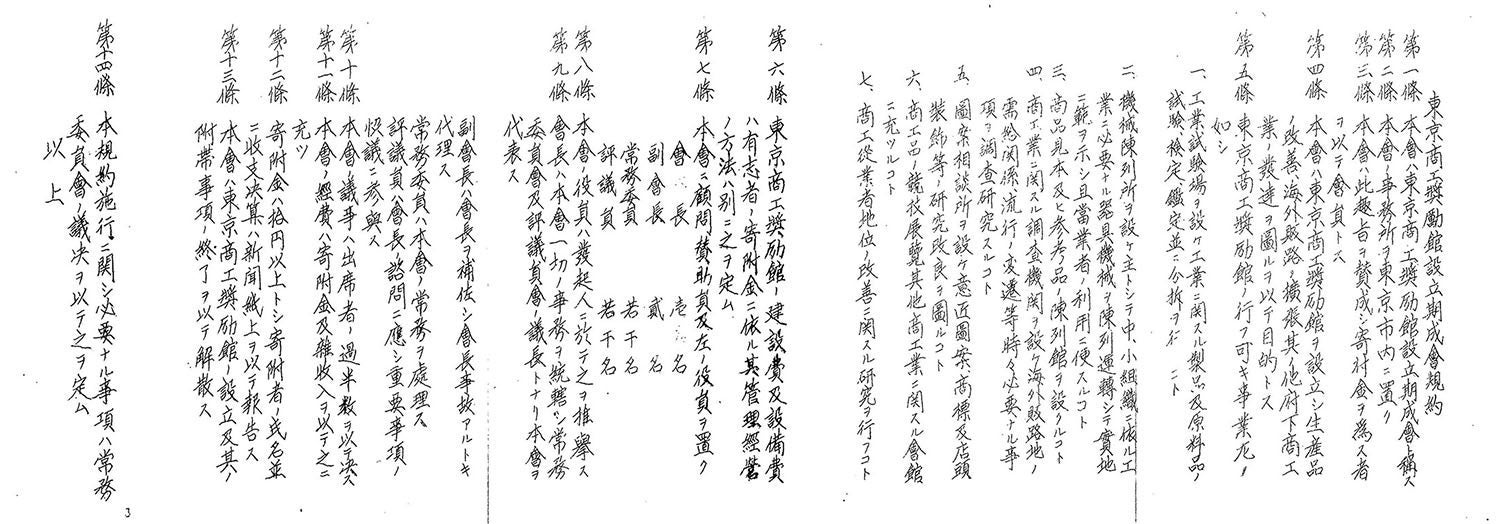 東京商工奬勵館設立期成會規約
第一條 本會ハ東京商工奬励館設立期成會ト稱ス
第二條 本會ノ事務所ヲ東京市内ニ置ク
第三條 本會ハ此趣旨ヲ賛成シ寄附金ヲ為ス者
ヲ以テ會員トス
第四條 本會ハ東京商工奬励館ヲ設立シ生産品
ノ改善海外販路ノ擴張其ノ他府下商工
業ノ發達ヲ圖ルヲ以テ目的トス
第五條 東京商工奬励館ノ行フ可キ事業凡ソ
如シ
一、工業試驗場ヲ設ケ工業ニ関スル製品及原料品ノ
試驗檢定鑑定並ニ分拆ヲ行フコト
二、機械陳列所ヲ設ケ主トシテ中、小組織ニ依ル工
業ニ必要ナル器具機械ヲ陳列運轉シテ實地
ニ範ヲ示シ且當業者ノ利用ニ便スルコト
三、商品見本及ヒ参考品ノ陳列館ヲ設クルコト
四、商工業ニ関スル調査機関ヲ設ケ海外販路地ノ
需給関係、流行ノ変遷等時々必要ナル事
項ヲ調査研究スルコト
五、圖案相談所ヲ設ケ意匠圖案、商標及店頭
装飾等ノ研究改良ヲ圖ルコト
六、商工品ノ競技展覽其他商工業ニ関スル會館
ニ充ツルコト
七、商工從業者地位ノ改善ニ関スル研究ヲ行フコト
第六條 東京商工奬励館ノ建設費及設備費
ハ有志者ノ寄附金ニ依ル其管理經營
ノ方法ハ別ニ之ヲ定ム
第七條 本會ニ顧問賛助員及左ノ役員ヲ置ク
會長 壱名
副會長 貳名
常務委員 若干名
評議員 若干名
第八條 本會ノ役員ハ發起人ニ於テ之ヲ推擧ス
第九條 會長ハ本會一切ノ事務ヲ統轄シ常務
委員會及評議員會ノ議長トナリ本會ヲ
代表ス
副會長ハ會長ヲ補佐シ會長事故アルトキ
代理ス
常務委員ハ本會ノ常務ヲ處理ス
評議員ハ會長ノ諮問ニ應シ重要事項ノ
决議ニ参與ス
第十條 本會ノ議事ハ出席者ノ過半数ヲ以テ决ス
第十一條 本會ノ經費ハ寄附金及雜收入ヲ以テ之ニ
充ツ
第十二條 寄附金ハ拾円以上トシ寄附者ノ氏名並
ニ收支决算ハ新聞紙上ヲ以テ報告ス
第十三條 本會ハ東京商工奬励館ノ設立及其ノ
附帯事項ノ終了ヲ以テ解散ス
第十四條 本規約施行ニ関シ必要ナル事項ハ常務
委員會ノ議决ヲ以テ之ヲ定ム
以上
3